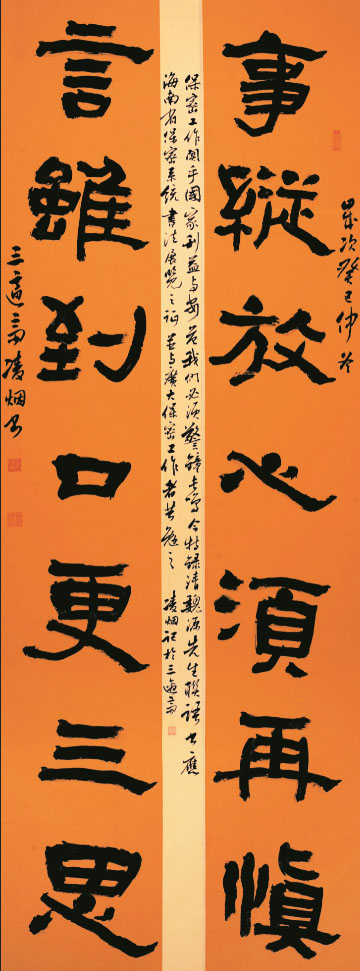 歲次癸巳仲冬
事縱放心須再慎
保密工作関乎國家利益与安危我们必须警鐘长鸣今特録清魏源先生聯語书應
海南省保密系统書法展覽之徵並与廣大保密工作者共勉之 凌烟记於三適斋
言雖到口更三思
三適斋凌烟书